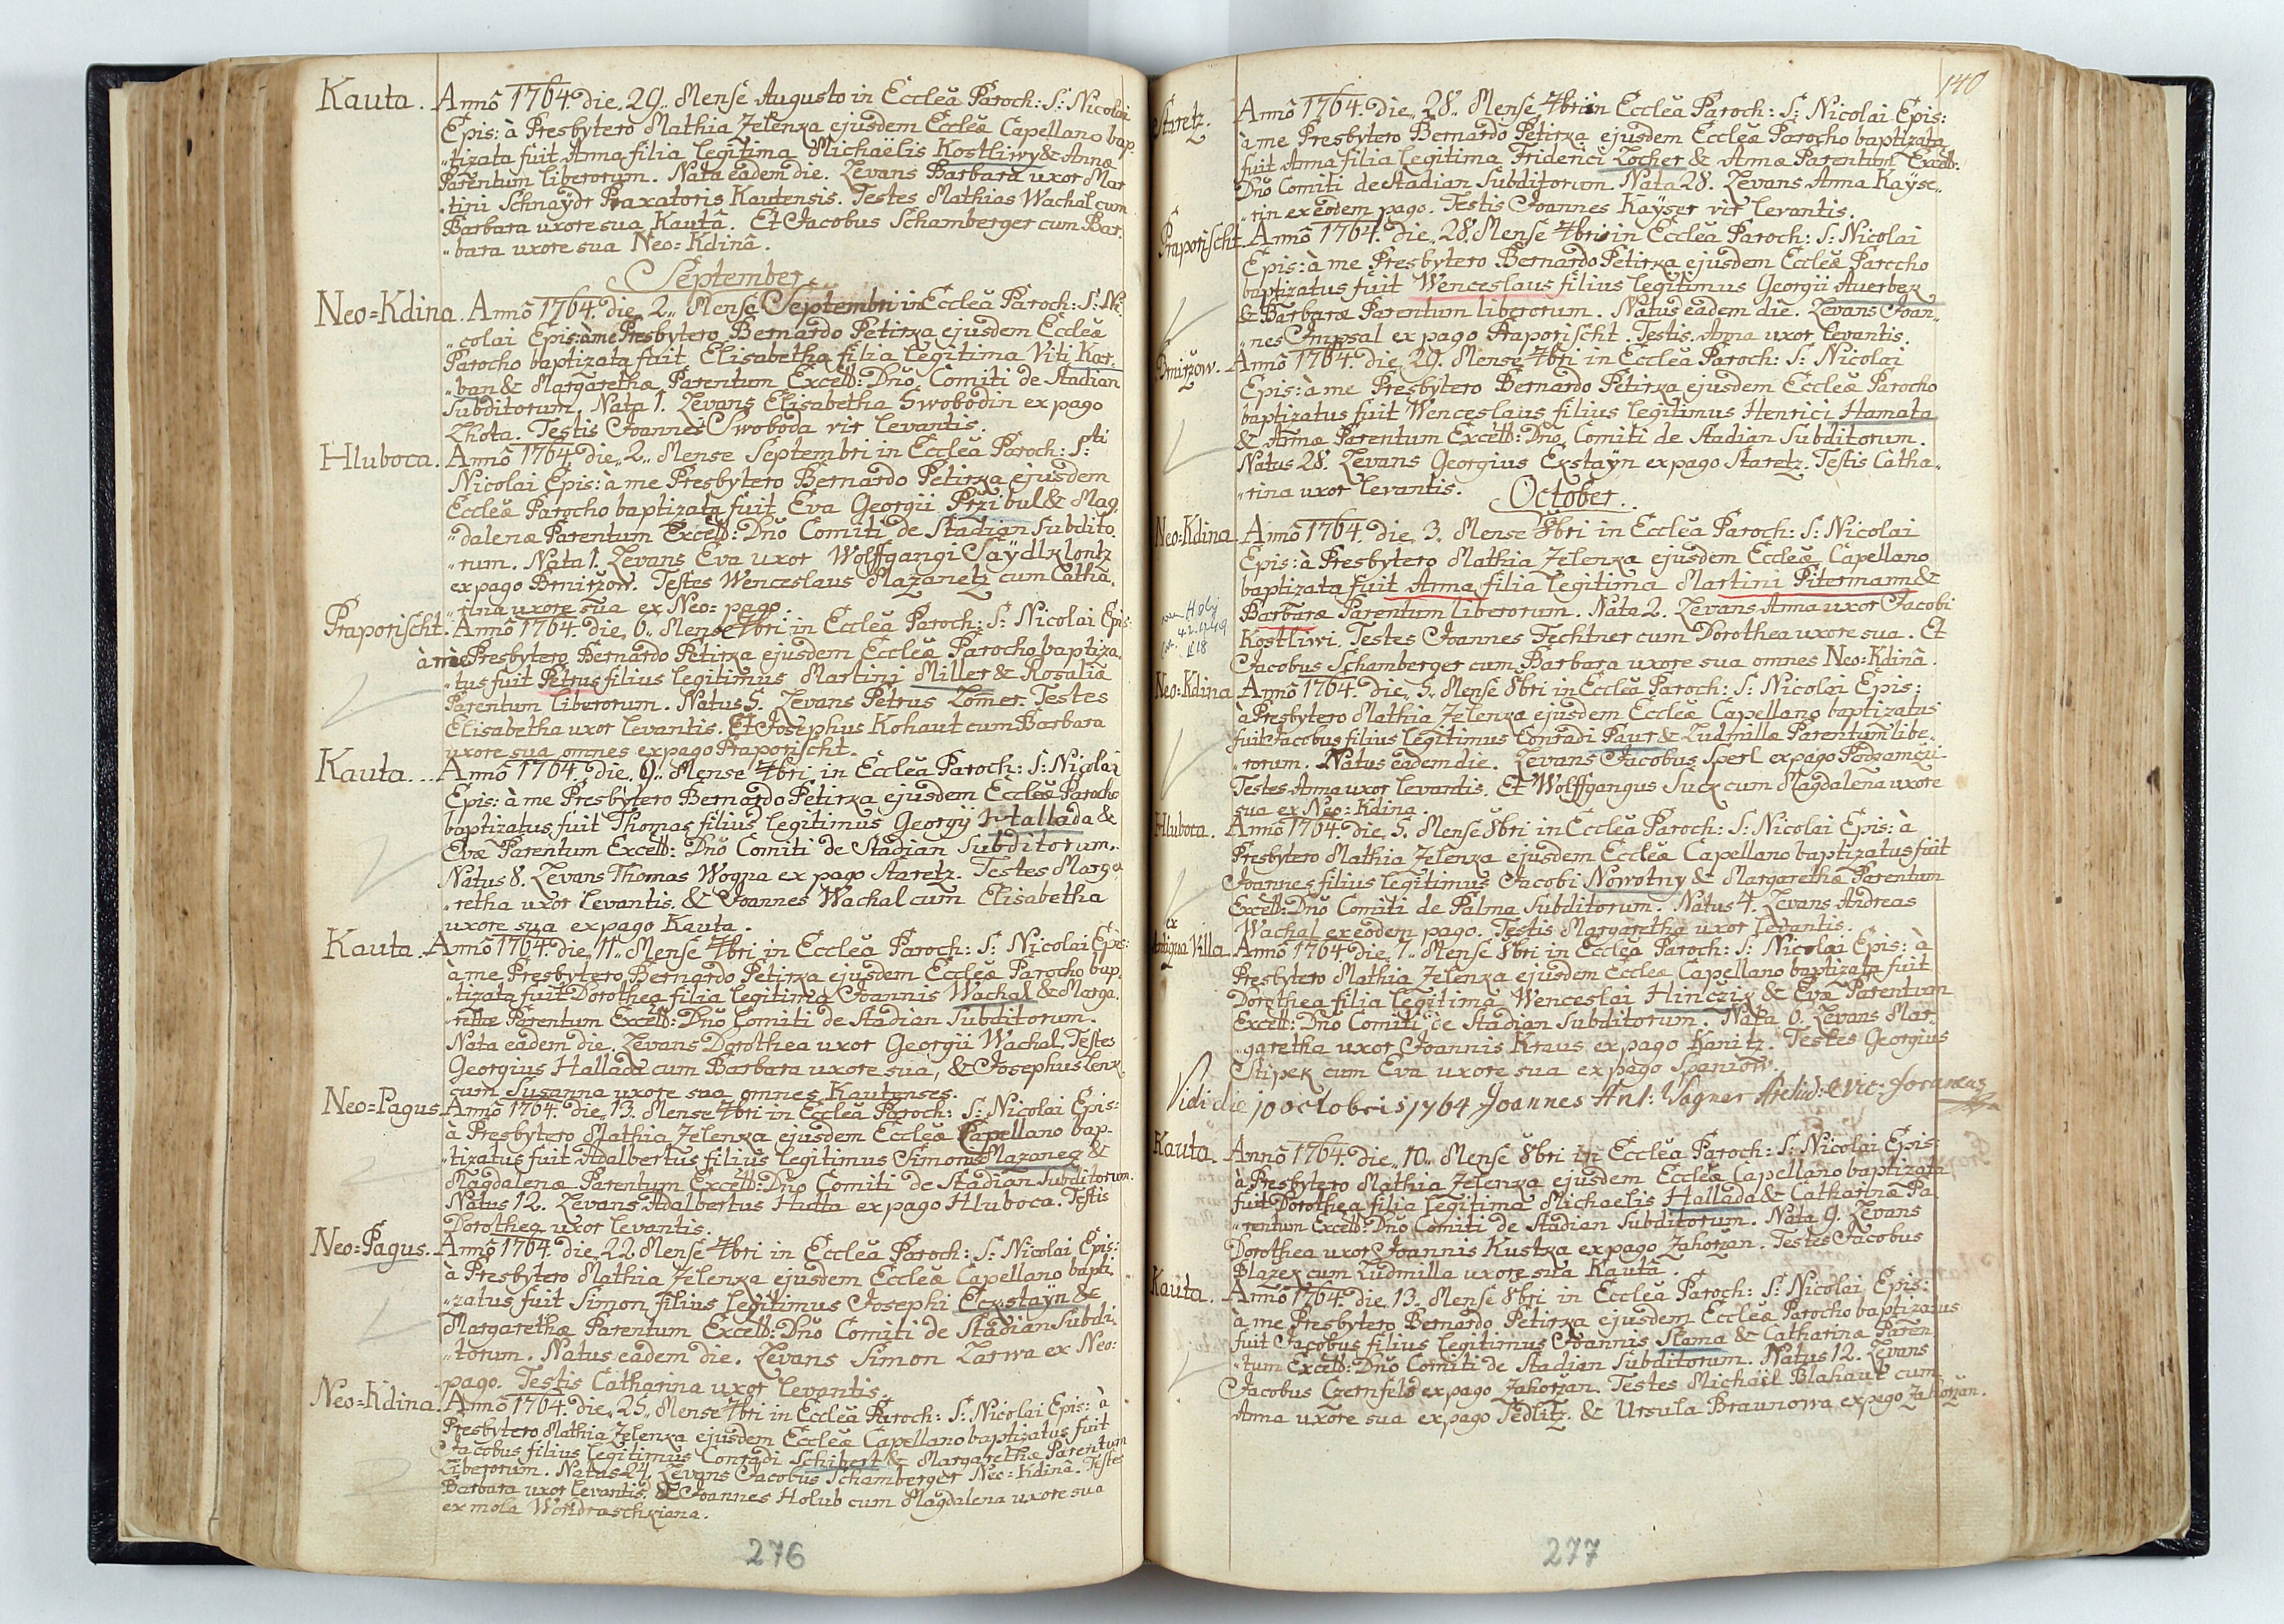 Kauta. Annô 1764. die 29. Mense Augusto in Ecclêa Paroch: S: Nicolai
Epis: à Presbytero Mathia Zelenka ejusdem Ecclêæ Capellano bap
"tizata fuit Anna filia legitima Michaëlis Kostliwy & Annæ
Parentum liberorum. Nata eadem die. Levans Barbara uxor Mar
"tini Schnaÿdr Praxatoris Kautensis. Testes Mathias Wachal cum
Barbara uxore sua Kautâ. Et Jacobus Schamberger cum Bar:
"bara uxore sua Neo=Kdinâ.
September
Neo=Kdina. Annô 1764. die 2. Mense Septembri in Ecclêa Paroch: S: Ni:
"colai Epis: à me Presbytero Bernardo Petirka ejusdem Ecclêæ
Parocho baptizata fuit Elisabetha filia legitima Viti Kor:
"ban & Margarethæ Parentum Excell: Dnô Comiti de Stadian
Subditorum. Nata 1. Levans Elisabetha Swobodin ex pago
Lhota. Testis Joannes Swoboda vir levantis.
Hluboca. Annô 1764. die 2. Mense Septembri in Ecclêa Paroch: S:ti
Nicolai Epis: à me Presbytero Bernardo Petirka ejusdem
Ecclêæ Parocho baptizata fuit Eva Georgii Przibul & Mag
"dalenæ Parentum Excell: Dnô Comiti de Stadian Subdito
"rum. Nata 1. Levans Eva uxor Wolffgangi Saÿdlklontz
ex pago Bmirzow. Testes Wenceslaus Mazanetz cum Catha,
"rina uxore sua ex Neo=pago.
Praporischt. Annô 1764. die 6. Mense 7bri in Ecclêa Paroch: S: Nicolai Epis:
à me Presbytero Bernardo Petirka ejusdem Ecclêæ Parocho baptiza,
"tus fuit Petrus filius legitimus Martini Miller & Rosaliæ
Parentum liberorum. Natus 5. Levans Petrus Lomer. Testes
Elisabetha uxor levantis. Et Josephus Kohaut cum Barbara
uxore sua omnes ex pago Praporischt.
Kauta... Annô 1764. die 9. Mense 7bri in Ecclêa Paroch: S: Nicolai
Epis: à me Presbytero Bernardo Petirka ejusdem Ecclêæ Parocho
baptizatus fuit Thomas filius legitimus Georgii Hallada &
Evæ Parentum Excell: Dnô Comiti de Stadian Subditorum.
Natus 8. Levans Thomas Wogna ex pago Staretz. Testes Marga
"retha uxor levantis. & Joannes Wachal cum Elisabetha
uxore sua ex pago Kauta.
Kauta. Annô 1764. die 11. Mense 7bri in Ecclêa Paroch: S: Nicolai Epis:
à me Presbytero Bernardo Petirka ejusdem Ecclêæ Parocho bap
"tizata fuit Dorothea filia legitima Joannis Wachal & Marga
"rethæ Parentum Excell: Dnô Comiti de Stadian Subditorum.
Nata eadem die. Levans Dorothea uxor Georgii Wachal. Testes
Georgius Hallada cum Barbara uxore sua, & Josephus Lenk
cum Susanna uxore sua omnes Kautenses.
Neo=Pagus. Annô 1764. die 13. Mense 7bri in Ecclêa Paroch: S: Nicolai Epis:
à Presbytero Mathia Zelenka ejusdem Ecclêæ Capellano bap-
"tizatus fuit Adalbertus filius legitimus Simonis Mazaneg &
Magdalenæ Parentum Excell: Dnô Comiti de Stadian Subditorum.
Natus 12. Levans Adalbertus Hutta ex pago Hluboca. Testis
Dorothea uxor levantis.
Neo=Pagus. Annô 1764. die 22. Mense 7bri in Ecclêa Paroch: S: Nicolai Epis:
à Presbytero Mathia Zelenka ejusdem Ecclêæ Capellano bapti
"zatus fuit Simon filius legitimus Josephi Eckstaÿn &
Margarethæ Parentum Excell: Dnô Comiti de Stadian Subdi.
"torum. Natus eadem die. Levans Simon Larwa ex Neo=
pago. Testis Catharina uxor levantis.
Neo=Kdina. Annô 1764. die 25. Mense 7bri in Ecclêa Paroch: S: Nicolai Epis: à
Presbytero Mathia Zelenka ejusdem Ecclêæ Capellano baptizatus fuit
Jacobus filius legitimus Conradi Schibert & Margarethæ Parentum
Liberorum. Natus 24. Levans Jacobus Schamberger Neo=Kdinâ. Testes
Barbara uxor levantis. & Joannes Holub cum Magdalena uxore sua
ex mola Wondraschkiana.
276
140
Staretz. Annô 1764. die 28. Mense 7bri in Ecclêa Paroch: S: Nicolai Epis:
à me Presbytero Bernardo Petirka ejusdem Ecclêæ Parocho baptizata
fuit Anna filia legitima Friderici Locher & Annæ Parentum Excell:
Dnô Comiti de Stadian Subditorum. Nata 28. Levans Anna Kaÿse,,
"rin ex eodem pago. Testis Joannes Kaÿser vir levantis.
Praporischt. Annô 1764. die 28. Mense 7bri in Ecclêa Paroch: S: Nicolai
Epis: à me Presbytero Bernardo Petirka ejusdem Ecclêæ Parocho
baptizatus fuit Wenceslaus filius legitimus Georgii Auerbek
& Barbaræ Parentum liberorum. Natus eadem die. Levans Joan,,
"nes Impsal ex pago Praporischt. Testis Anna uxor levantis.
Bmirzow. Annô 1764. die 29. Mense 7bri in Ecclêa Paroch: S: Nicolai
Epis: à me Presbytero Bernardo Petirka ejusdem Ecclêæ Parocho
baptizatus fuit Wenceslaus filius legitimus Henrici Hamata
& Annæ Parentum Excell: Dnô Comiti de Stadian Subditorum.
Natus 28. Levans Georgius Ekstaÿn ex pago Staretz. Testis Catha,,
"rina uxor levantis.
October.
Neo=Kdina. Annô 1764. die 3. Mense 8bri in Ecclêa Paroch: S: Nicolai
Epis: à Presbytero Mathia Zelenka ejusdem Ecclêæ Capellano
baptizata fuit Anna filia legitima Martini Pitermann &
Barbaræ Parentum liberorum. Nata 2. Levans Anna uxor Jacobi
Kostliwi. Testes Joannes Fechtner cum Dorothea uxore sua. Et
Jacobus Schamberger cum Barbara uxore sua omnes Neo=Kdinâ.
Neo=Kdina. Annô 1764. die 5. Mense 8bri in Ecclêa Paroch: S: Nicolai Epis:
à Presbytero Mathia Zelenka ejusdem Ecclêæ Capellano baptizatus
fuit Jacobus filius legitimus Conradi Paur & Ludmillæ Parentum libe,
"rorum. Natus eadem die. Levans Jacobus Sperl ex pago
Testes Anna uxor levantis. Et Wolffgangus Suck cum Magdalena uxore
sua ex Neo=Kdina.
Hluboca. Annô 1764. die 5. Mense 8bri in Ecclêa Paroch: S: Nicolai Epis: à
Presbytero Mathia Zelenka ejusdem Ecclêæ Capellano baptizatus fuit
Joannes filius legitimus Jacobi Nowotny & Margarethæ Parentum
Excell: Dnô Comiti de Palma Subditorum. Natus 4. Levans Andreas
Wachal ex eodem pago. Testis Margaretha uxor levantis.
ex Villa. Annô 1764. die 7. Mense 8bri in Ecclêa Paroch: S: Nicolai Epis: à
Presbytero Mathia Zelenka ejusdem Ecclêæ Capellano baptizata fuit
Dorothea filia legitima Wenceslai Hinczik & Evæ Parentum
Excell: Dnô Comiti de Stadian Subditorum. Nata 6. Levans Mar,
"garetha uxor Joannis Kraus ex pago Kanitz. Testes Georgius
Stipek cum Eva uxore sua ex pago Spaniow.
Vidi die 10 octobris 1764 Joannes Ant: Wagner
Kauta. Annô 1764. die 10. Mense 8bri in Ecclêa Paroch: S: Nicolai Epis:
à Presbytero Mathia Zelenka ejusdem Ecclêæ Capellano baptizata
fuit Dorothea filia legitima Michaelis Hallada & Catharinæ Pa
"rentum Excell: Dnô Comiti de Stadian Subditorum. Nata 9. Levans
Dorothea uxor Joannis Kustka ex pago Zahorzan. Testes Jacobus
Blazek cum Ludmilla uxore sua Kautâ.
Kauta. Annô 1764. die 13. Mense 8bri in Ecclêa Paroch: S: Nicolai Epis:
à me Presbytero Bernardo Petirka ejusdem Ecclêæ Parocho baptizatus
fuit Jacobus filius legitimus Joannis Slama & Catharinæ Paren
"tum Excell: Dnô Comiti de Stadian Subditorum. Natus 12. Levans
Jacobus Czernfeld ex pago Zahorzan. Testes Michaël Blahaut cum
Anna uxore sua ex pago Sedlitz. & Ursula Braunowa ex pago Zahorzan.
277